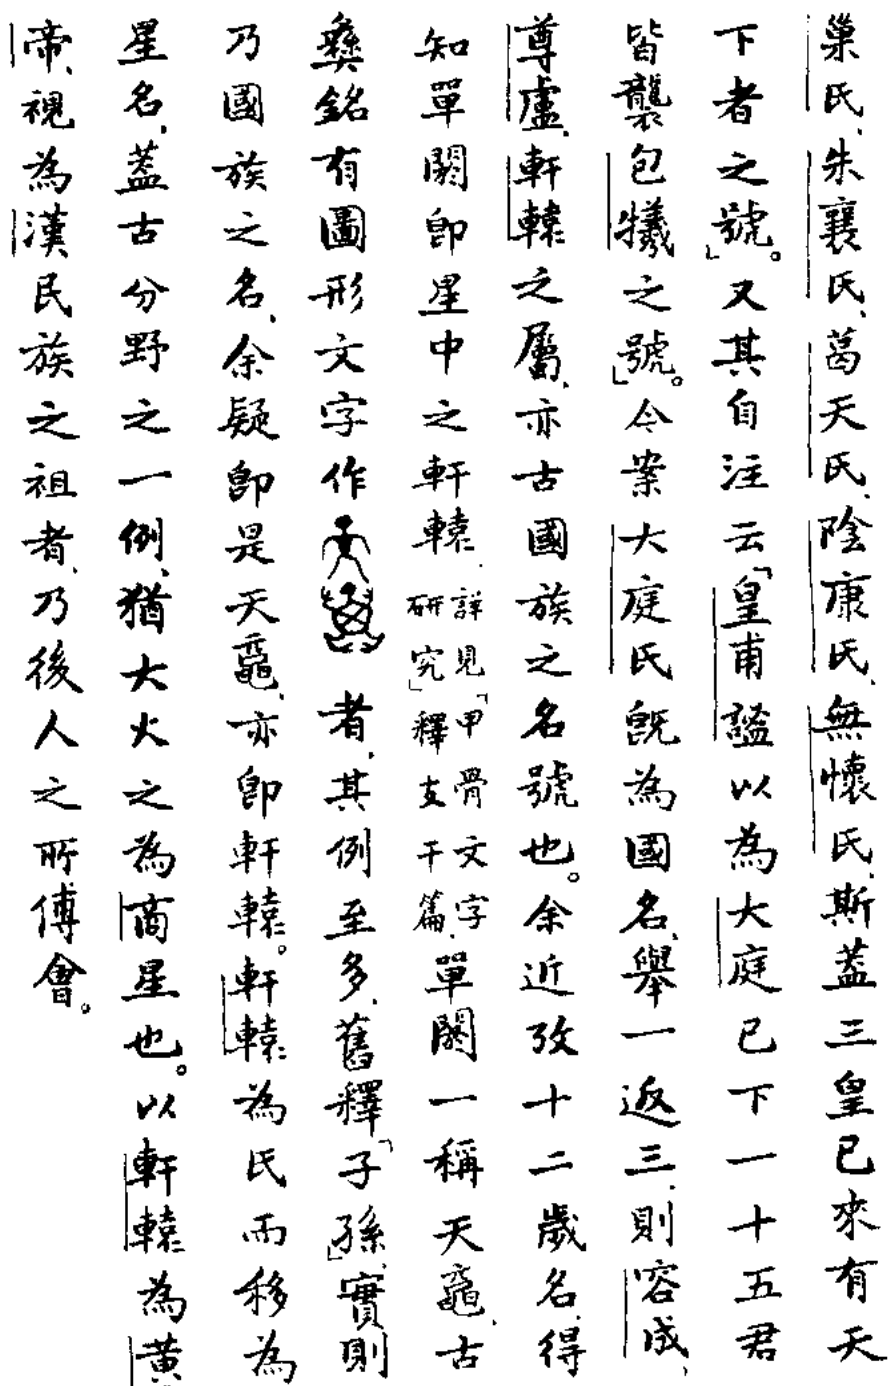 巢氏、朱襄氏、葛天氏、陰康氏、無懷氏、斯蓋三皇已來有天
下者之號」。又其自注云「皇甫謐以為大庭已下一十五君
皆襲包犧之號」。今案大庭氏旣為國名、舉一返三、則容成、
尊盧、軒轅之屬、亦古國族之名號也。余近攷十二歲名、得
知單閼卽星中之軒轅、詳見「甲骨文字研究」釋支干篇、單閼一稱天黿、古
彝銘有圖形文字作者、其例至多、舊釋「子孫」、實則
乃國族之名、余疑卽是天黿、亦卽軒轅。軒轅為氏而移為
星名、蓋古分野之一例、猶大火之為商星也。以軒轅為黃
帝、視為漢民族之祖者、乃後人之所傅會。